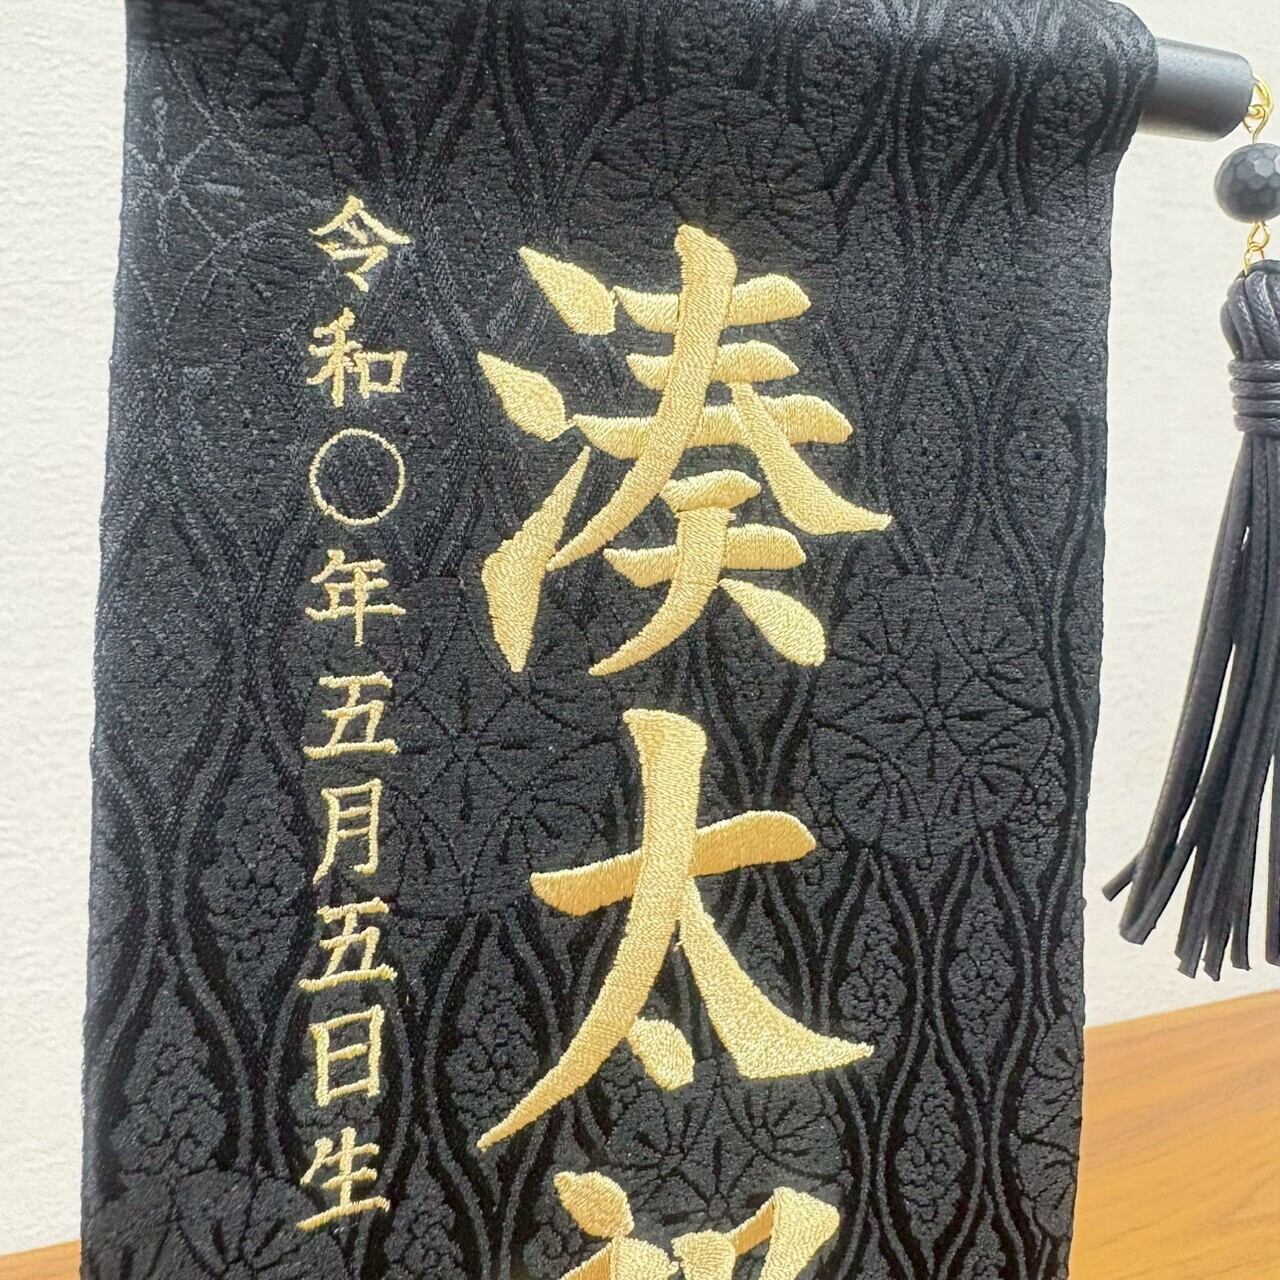 湊太
令和〇年五月五日生